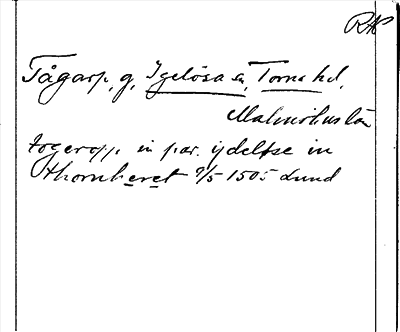 RAP
Tågarp, g, Igelösa sn, Torna hd,
Malmöhus län
togeropp in par. ydeløse in
thornheret 9/5 1505 Lund